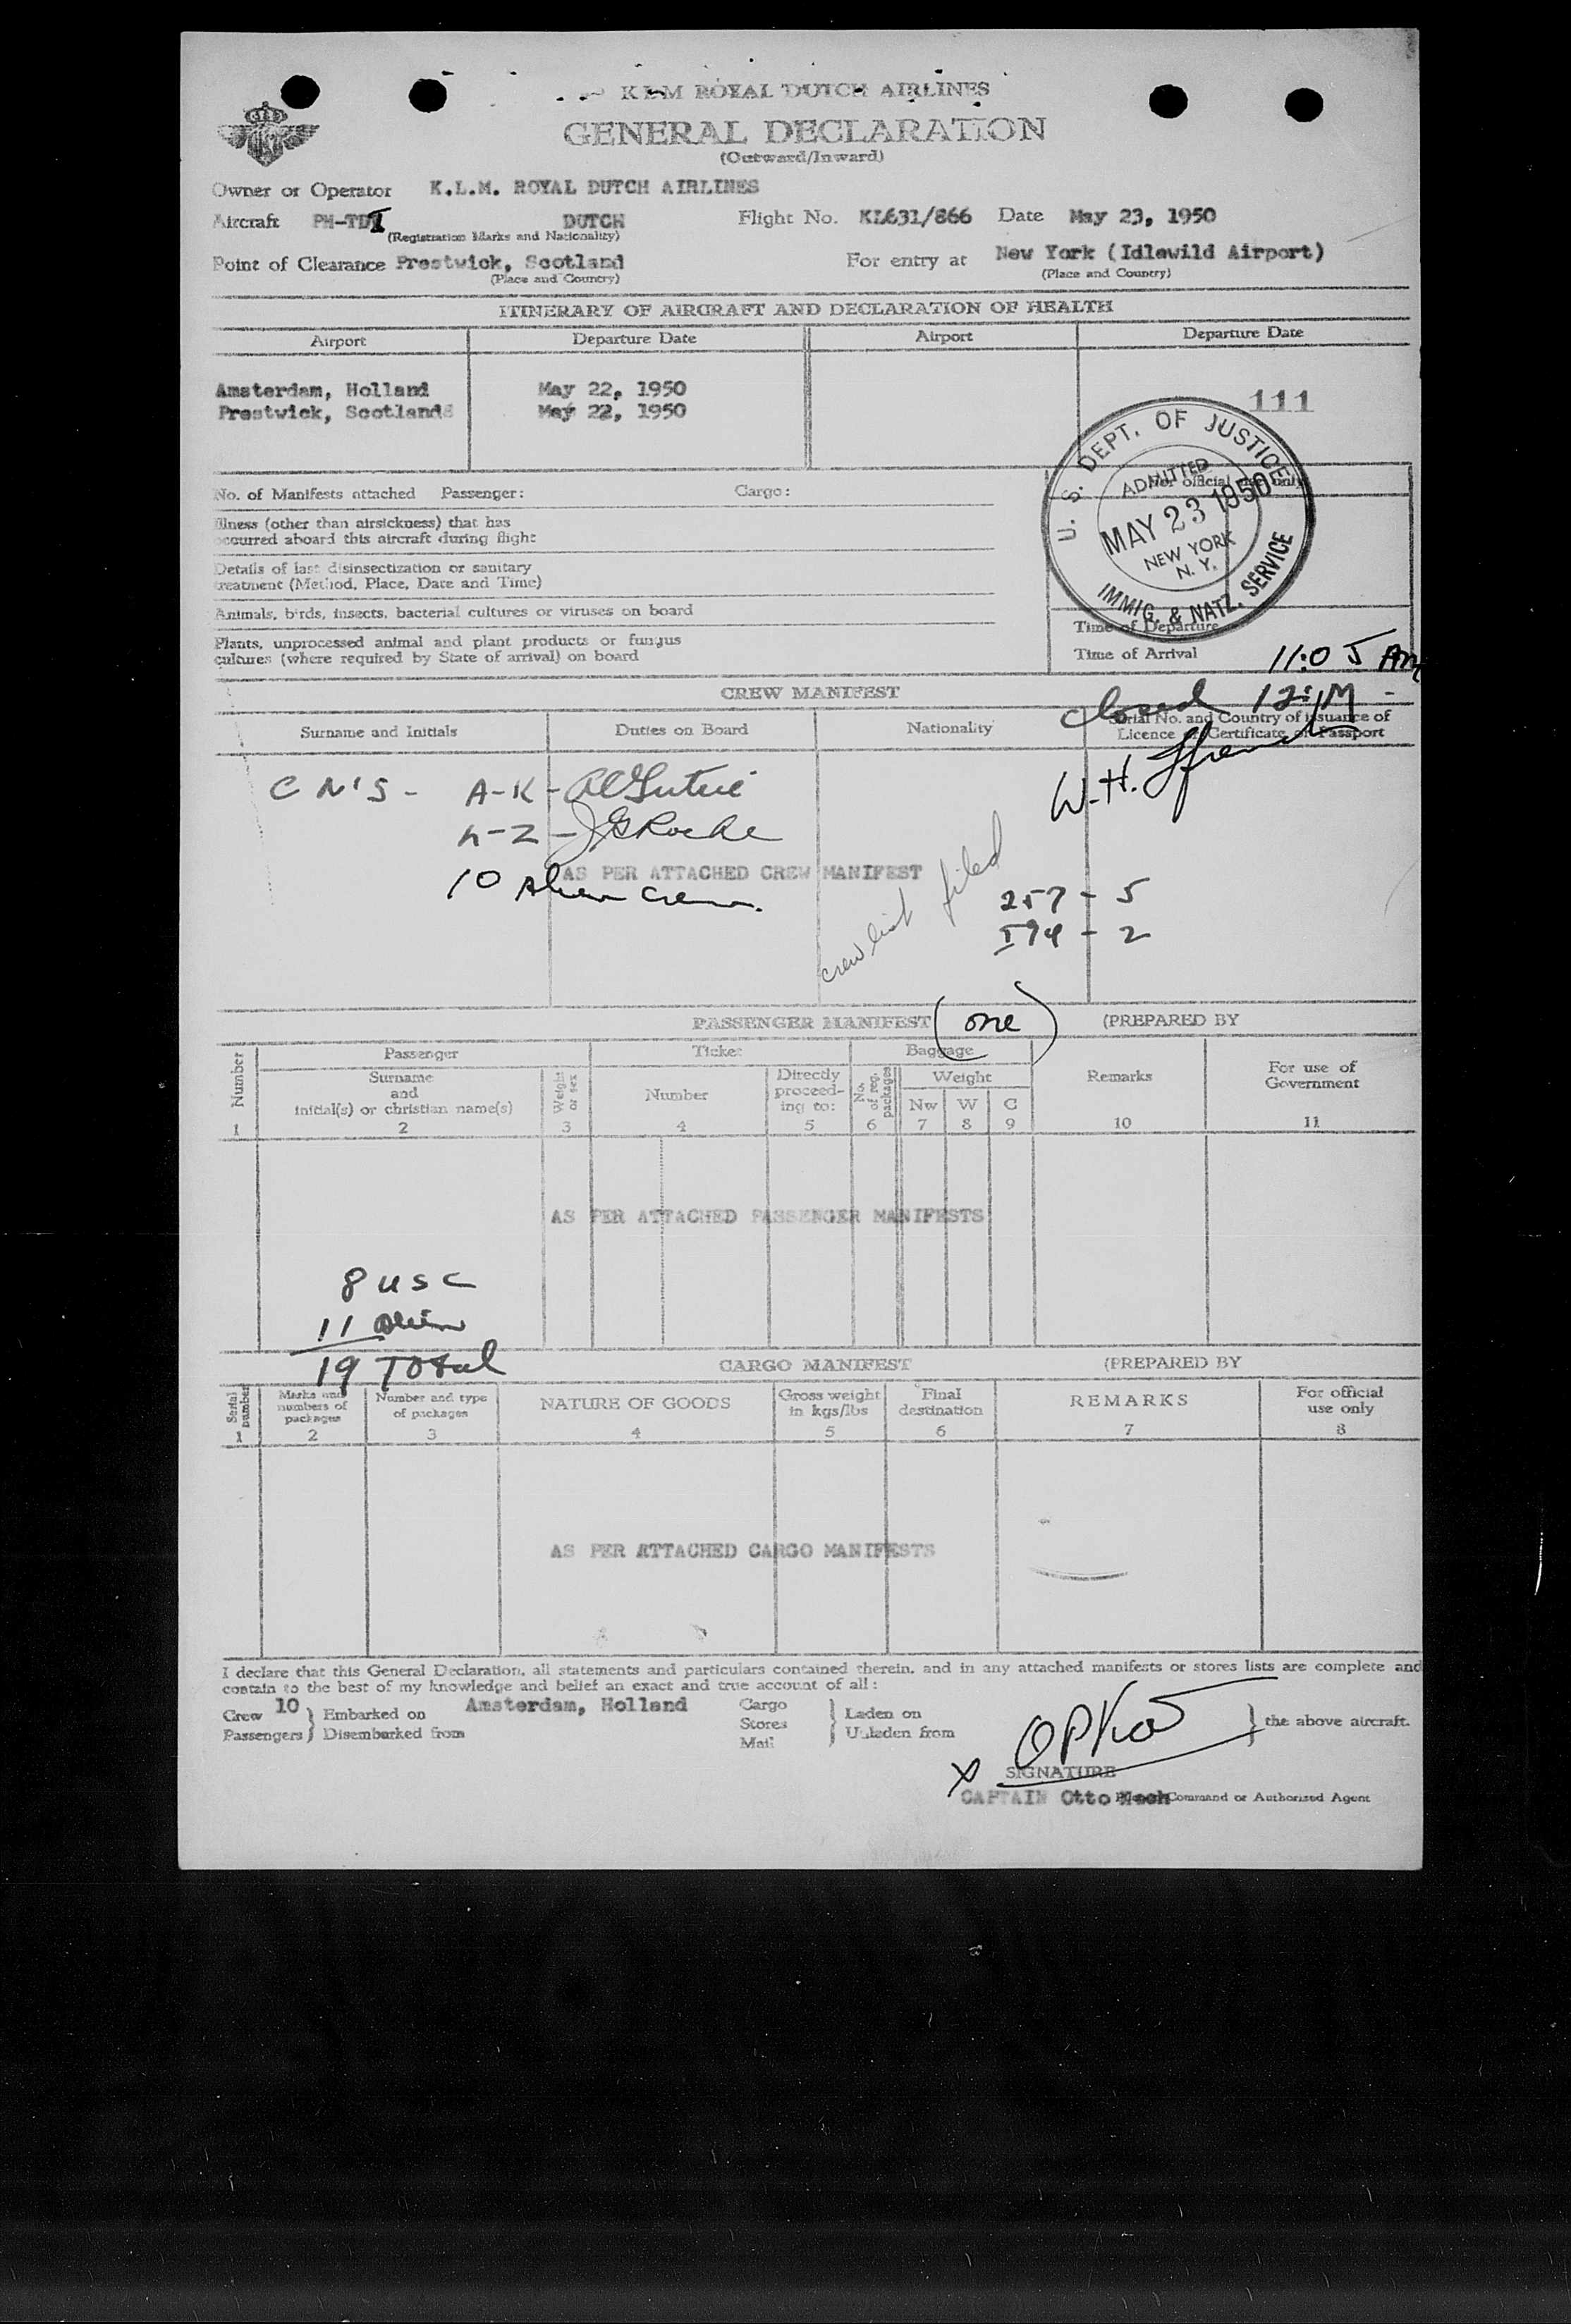 KLM ROYAL DUTCH AIRLINES
GENERAL DECLARATION
(Outward/Inward)
Owner or Operator K.L.M. ROYAL DUTCH AIRLINES
Aircraft PH-TDI DUTCH Flight No. KL631/866 Date May 23, 1950
(Registration Marks and Nationality)
Point of Clearance Prestwick, Scotland For entry at New York (Idlewild Airport)
(Place and Country) (Place and Country)
ITINERARY OF AIRCRAFT AND DECLARATION OF HEALTH
Airport Departure Date Airport Departure Date
Amsterdam, Holland May 22, 1950
Prestwick, Scotland May 22, 1950
111
U. S. DEPT. OF JUSTICE
ADMITTED
MAY 23 1950
NEW YORK
N. Y.
IMMIG. & NATZ. SERVICE
For official use only
No. of Manifests attached Passenger: Cargo:
Illness (other than airsickness) that has
occurred aboard this aircraft during flight
Details of last disinsectization or sanitary
treatment (Method, Place, Date and Time)
Animals, birds, insects, bacterial cultures or viruses on board
Plants, unprocessed animal and plant products or fungus
cultures (where required by State of arrival) on board
Time of Departure
Time of Arrival 11:05 AM
closed 12:M
CREW MANIFEST
Surname and Initials Duties on Board Nationality Serial No. and Country of issuance of
Licence or Certificate or Passport
W.H.
C N'S - A-K -
L-Z - J G Roche
AS PER ATTACHED CREW MANIFEST
10 Alien Crew
crew list filed
257 - 5
I94 - 2
PASSENGER MANIFEST (one) (PREPARED BY
Number Passenger Ticket Baggage Remarks For use of
Government
Surname
and
initial(s) or christian name(s)
Weight or sex Number Directly
proceed-
ing to:
No. of reg. packages Weight
Nw W C
1 2 3 4 5 6 7 8 9 10 11
AS PER ATTACHED PASSENGER MANIFESTS
8 USC
11 Alien
19 Total
CARGO MANIFEST (PREPARED BY
Serial number Marks and
numbers of
packages
Number and type
of packages
NATURE OF GOODS Gross weight
in kgs/lbs
Final
destination
REMARKS For official
use only
1 2 3 4 5 6 7 8
AS PER ATTACHED CARGO MANIFESTS
I declare that this General Declaration, all statements and particulars contained therein, and in any attached manifests or stores lists are complete and
contain to the best of my knowledge and belief an exact and true account of all:
Crew 10 Embarked on Amsterdam, Holland Cargo Laden on
Passengers Disembarked from Stores Unladen from the above aircraft.
Mail
X OPKoch
SIGNATURE
CAPTAIN Otto Koch Command or Authorized Agent